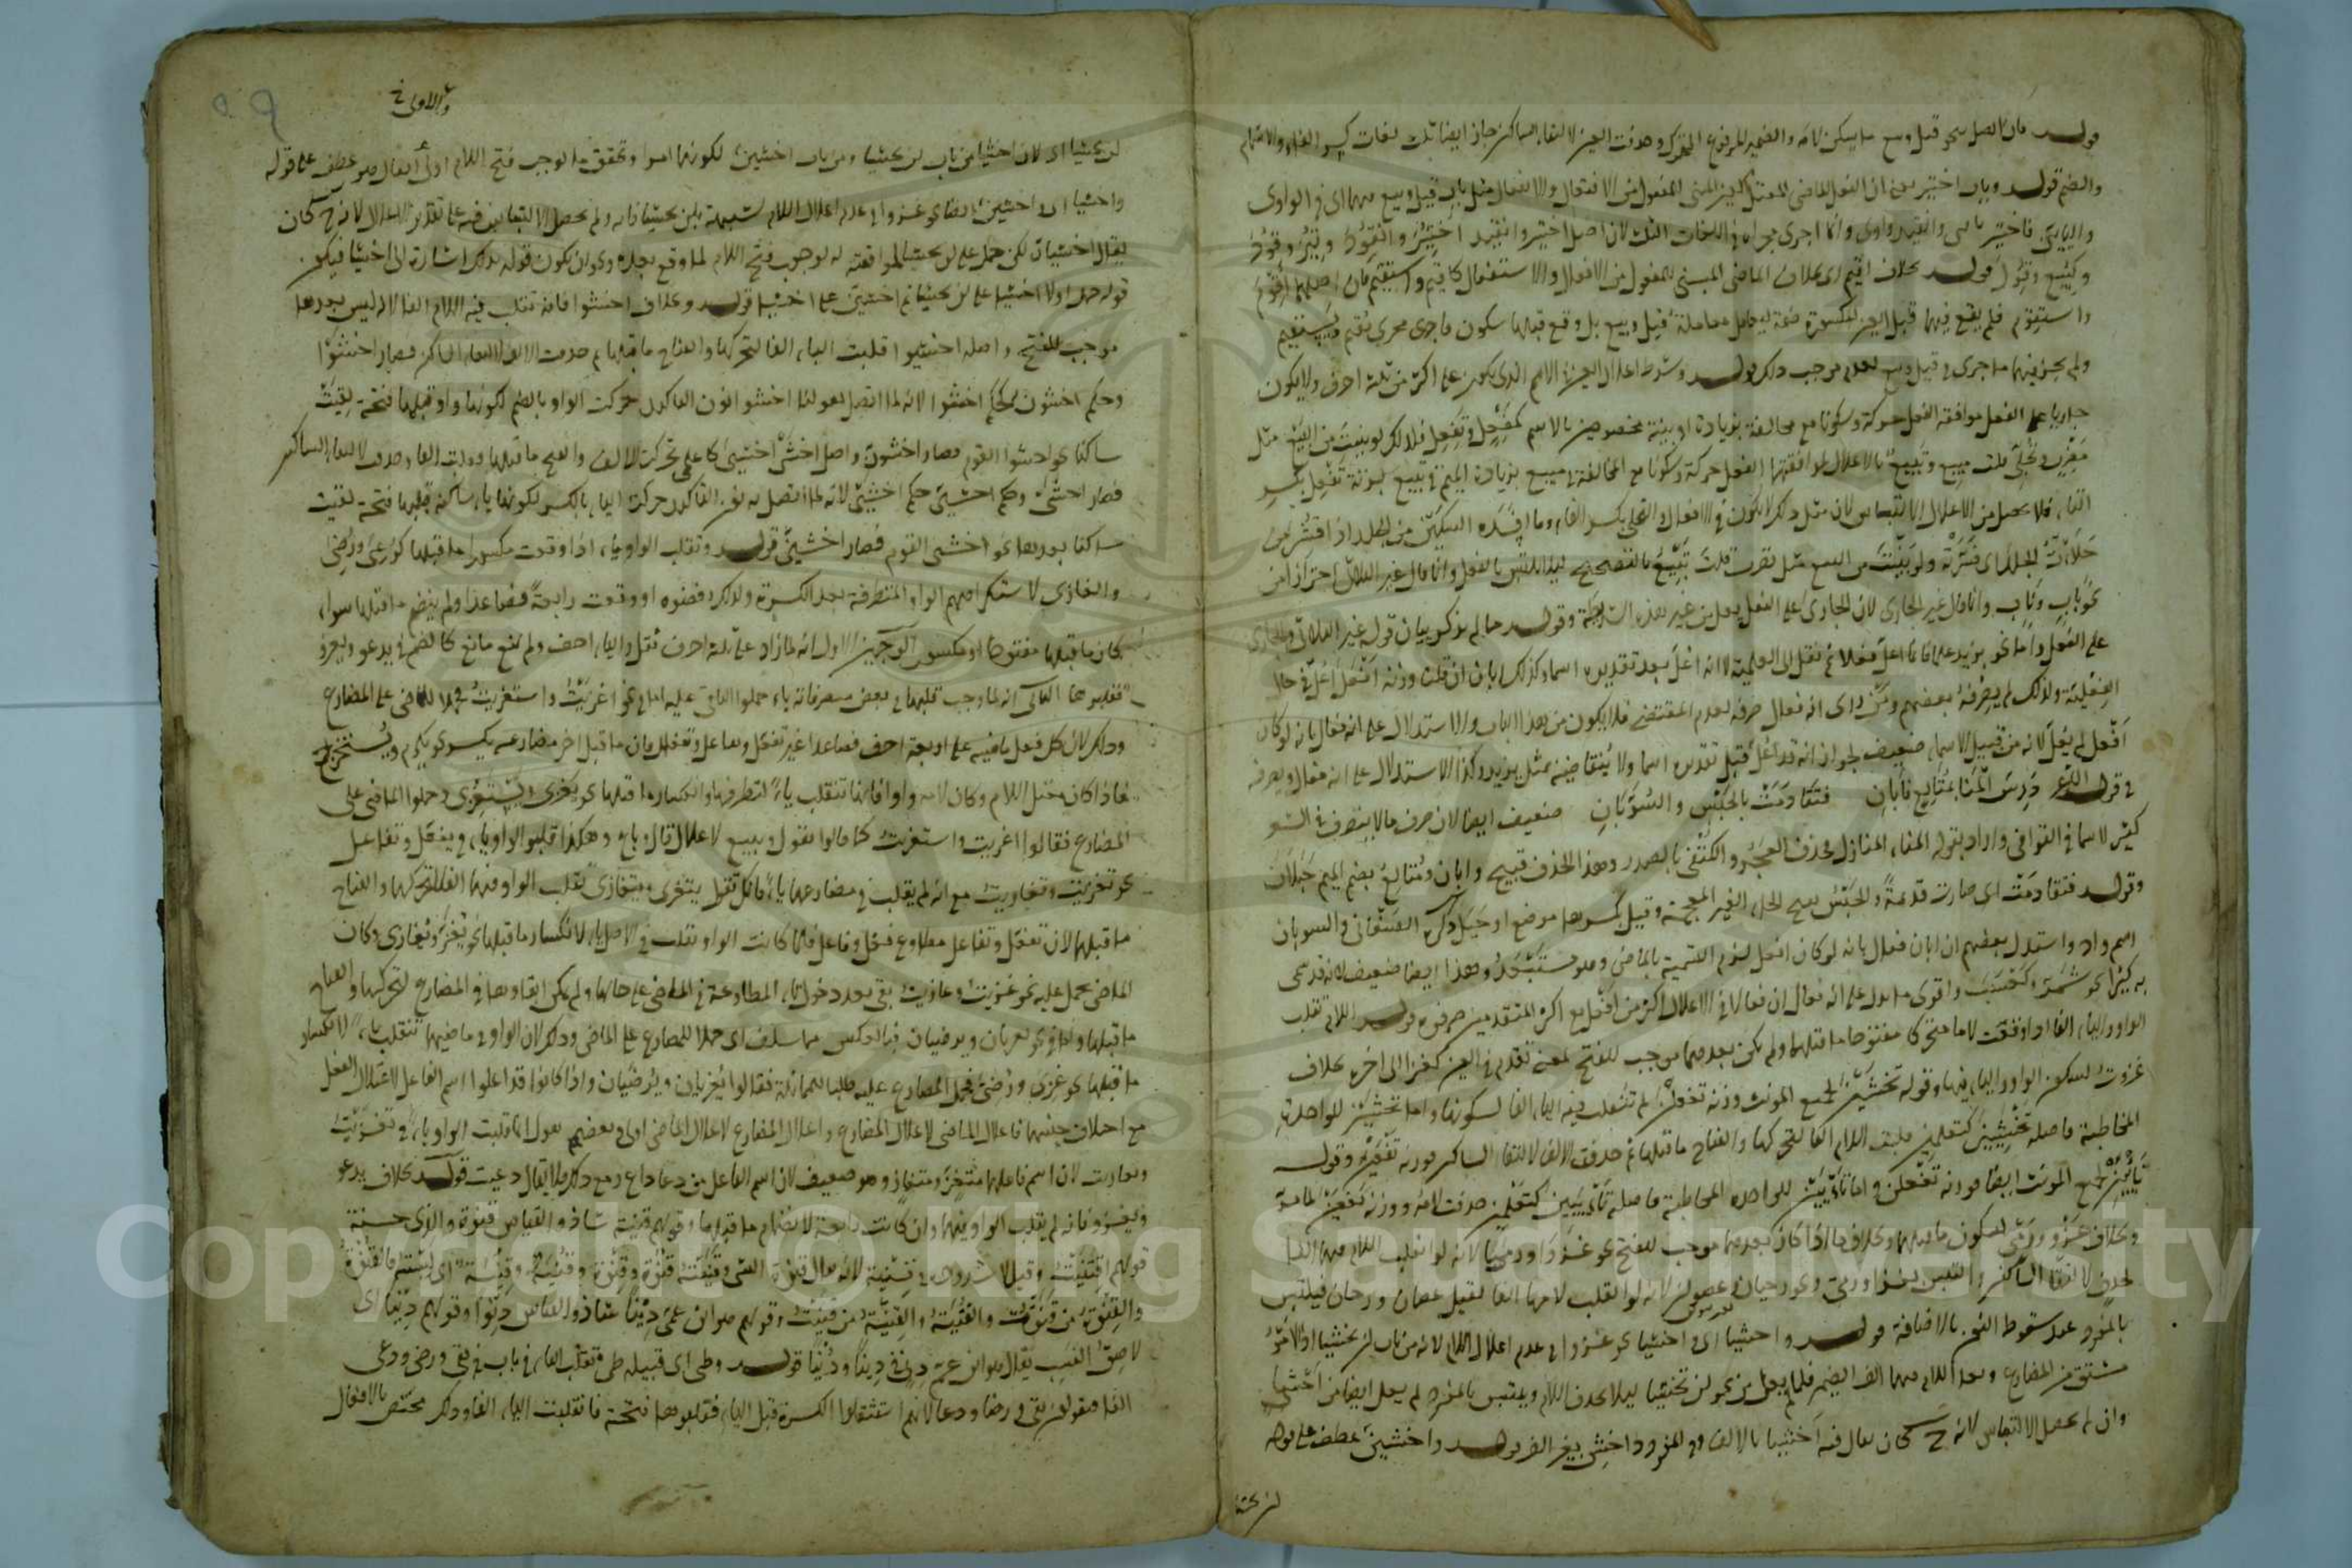 قوله فان اتصل نحو قيل وبيع ما يسكن لامه والضمير المرفوع المتحرك وحذفت العين لالتقاء الساكنين جاز ايضا ثلث لغات كسر الفاء والاشمام
والضم قوله وباب اختير يعني ان الفعل الماضي المعتل العين المبني للمفعول من الافتعال والانفعال مثل باب قيل وبيع فيهما اي في الواوى
واليايي فاختير يايي وانقيد واوى وانما اجرى مجراه في اللغات الثلث لان اصل اختير وانقيد اختير وانقود
وبيع وقول قوله بخلاف اقيم اي بخلاف الماضي المبني للمفعول من الافعال والاستفعال كاقيم واستقيم فان اصلهما اقوم
واستقوم فلم يقع فيهما قبل العين المكسورة ضمة ليعامل معاملة قيل وبيع بل وقع قبلهما سكون فاجرى مجرى يقيم ويستقيم
ولم يجز فيهما ما جرى في قيل وبيع لعدم موجب ذلك قوله وشرط اعلال العين في الاسم الذي يكون على اكثر من ثلثة احرف ولا يكون
جاريا على الفعل موافقة الفعل حركة وسكونا مع مخالفة بزيادة او بنية مخصوصين بالاسم كمفعل وتفعل فلذلك لو بنيت من البيع مثل
مضرب وتحلئ قلت مبيع وتبيع بالاعلال لموافقتهما الفعل حركة وسكونا مع المخالفة في مبيع بزيادة الميم وفي تبيع بزنة تفعل بكسر
التاء فلا يحصل من الاعلال الالتباس لان مثل ذلك لا يكون في الافعال والتحلئ بكسر التاء وما افسده السكين من الجلد اذا قشر من
حلأت الجلد اي قشرته ولو بنيت من البيع مثل تضرب قلت تبيع بالتصحيح ليلا يلتبس بالفعل وانما قال غير الثلاثي احترازا من
نحو باب وناب وانما قال غير الجارى لان الجارى على الفعل يعل من غير هذه الشريطة وقوله مما لم يذكر بيان قوله غير الثلاثي والجارى
على الفعل واما نحو يزيد علما فانما اعل فعلا ثم نقل الى العلمية لا انه اعل بعد تقديره اسما وكذلك ابان ان قلت وزنه افعل اعل في حال
الفعلية ولذلك لم يصرفه بعضهم ومن راى انه فعال صرفه لعدم المقتضى فلا يكون من هذا الباب والاستدلال على انه فعال بانه لو كان
افعل لم يعل لانه من قبيل الاسماء ضعيف لجواز انه قد اعل قبل تقديره اسما ولا ينتقاضه بمثل يزيد وكذا الاستدلال على انه فعال وبصرفه
في قول الشاعر درس المنا بمتالع فابان فتقادمت بالحبس والسوبان ضعيف ايضا لان صرف ما لا ينصرف في الشعر
كثير لا سيما في القوافي واراد بقوله المنا المنازل فحذف العجز واكتفى بالصدر وهذا الحذف قبيح وابان ومتالع بضم الميم جبلان
وقوله فتقادمت اي صارت قديمة والحبس بفتح الحاء الغير المعجمة وقيل بكسرها موضع او جبل ذكره الصغاني والسوبان
اسم واد واستدل بعضهم ان ابان فعال بانه لو كان افعل لزم التسمية بالماضي وهو مستبعد وهذا ايضا ضعيف لانه قد سمى
به كثيرا نحو شمر وكعسب واقوى ما يدل على انه فعال ان فعالا في الاعلام اكثر من افعل مع اكثر المتقدمين صرفوه قوله اللام تقلب
الواو والياء الفا اذا وقعت لاما متحركا مفتوحا ما قبلها ولم يكن بعدهما موجب للفتح لمعنى تقدم في العين كغزا الى اخره بخلاف
غزوت لسكون الواو والياء فيها وقوله تخشين لجمع المونث وزنه تفعلن لم تنقلب فيه الياء الفا لسكونها واما تخشين للواحدة
المخاطبة فاصله تخشيين كتعلمين قلبت اللام الفا لتحركها وانفتاح ما قبلها ثم حذفت الالف لالتقاء الساكنين فوزنه تفعين وقوله
تأبين لجمع المونث ايضا فوزنه تفعلن واما تأبين للواحدة المخاطبة فاصله تأبيين كتعلمين حذفت لامه ووزنه تفعين لما مر
وبخلاف غزو ورمي لسكون ما قبلهما وبخلاف ما اذا كان بعدهما موجب للفتح نحو غزوا ورميا لانه لو انقلب اللام فيهما الفا
لحذفت لالتقاء الساكنين والتبس بغزا ورمى ونحو رحيان وعصوان لانه لو انقلب لامهما الفا لقيل عصان ورحان فيلتبس
بالمفرد عند سقوط النون بالاضافة قوله واخشيا اي واخشيا نحو غزوا في عدم اعلال اللام لانه من باب لن يخشيا اذ الامر
مشتق من المضارع وبعد اللام فيهما الف الضمير فلما لم يعل من نحو لن يخشيا ليلا يحذف اللام ويلتبس بالمفرد لم يعل ايضا من اخشيا
وان لم يحصل الالتباس لانه ح كان يقال فيه اخشيا بالالف وفي المفرد اخش بغير الف قوله واخشين عطف على قوله
لن يخشيا
والاولى خ
لن يخشيا اي لان اخشيا من باب لن يخشيا ومن باب اخشين لكونهما امرا وتحقق ما يوجب فتح اللام
واخشيا اي واخشين ايضا نحو غزوا في عدم اعلال اللام لشبهه بلن يخشيا
يقال اخشيان لكن حمل على لن يخشيا لموافقته له لوجوب فتح اللام لما وقع بعده ويجوز ان يكون قوله ذلك اشارة الى اخشيا فيكون
قوله حمل اولا اخشيا على لن يخشيا ثم اخشين على اخشيا قوله وبخلاف اخشوا فانه تقلب فيه اللام الفا لانه ليس بعدها
موجب للفتح واصله اخشيوا قلبت الياء الفا لتحركها وانفتاح ما قبلها ثم حذفت الالف لالتقاء الساكنين فصار اخشوا
وحكم اخشون حكم اخشوا لانه لما اتصل بقولنا اخشوا نون التاكيد حركت الواو بالضم لكونها واوا قبلها فتحة لقيت
ساكنا نحو اخشوا القوم فصار اخشون واصل اخشى اخشيي كاعلمي تحركت اللام وانفتح ما قبلها فقلبت الفا وحذفت لالتقاء الساكنين
فصار اخشي وحكم اخشين حكم اخشي لانه لما اتصل به نون التاكيد حركت الياء بالكسر لكونها ياء ساكنة قبلها فتحة لقيت
ساكنا بعدها نحو اخشي القوم فصار اخشين قوله وتقلب الواو ياء اذا وقعت مكسورا ما قبلها كدعي ورضي
والغازى لاستكراههم الواو المتطرفة بعد الكسرة ولذلك رفضوه او وقعت رابعة فصاعدا ولم ينضم ما قبلها سواء
كان ما قبلها مفتوحا او مكسورا لوجهين الاول انه لما زاد على ثلثة احرف ثقل والياء اخف ولم يمنع مانع كالضم في يدعو ويغزو
فقلبوها الثاني انه لما وجب قلبها في بعض متصرفاته ياء حملوا الباقي عليه اما في نحو اغزيت واستغزيت فحملا للماضي على المضارع
وذلك لان كل فعل ماضيه على اربعة احرف فصاعدا غير تفعل وتفاعل وتفعلل فان ما قبل اخر مضارعه يكسر نحو يكرم ويستخرج
فاذا كان معتل اللام وكان لامه واوا فانها تنقلب ياء لتطرفها وانكسار ما قبلها نحو يغزى ويستغزى وحملوا الماضي على
المضارع فقالوا اغزيت واستغزيت كما قالوا يقول ويبيع لاعلال قال وباع وهكذا قلبوا الواو ياء في يتفعل وتفاعل
نحو تغزيت وتغازيت مع انه لم يقلب في مضارعهما ياء فانك تقول يتغزى ويتغازى بقلب الواو فيهما الفا لتحركها وانفتاح
ما قبلها لان تفعل وتفاعل مطاوع فعل وفاعل فلما كانت الواو تقلب في الاصل ياء لانكسار ما قبلها نحو يغزي ويغازي وكان
الماضي يحمل عليه نحو غزيت وغازيت بقي بعد دخول تاء المطاوعة في الماضي على حالها ولم يمكن ابقاوها في المضارع لتحركها وانفتاح
ما قبلها واما في نحو يغزيان ويرضيان فبالعكس مما سلف اي حملا للمضارع على الماضي وذلك لان الواو في ماضيهما تنقلب ياء لانكسار
ما قبلها نحو غزي ورضي فحمل المضارع عليه طلبا للمماثلة فقالوا يغزيان ويرضيان واذا كانوا قد اعلوا اسم الفاعل لاعتلال الفعل
مع اختلاف جنسهما فاعلال الماضي لاعلال المضارع واعلال المضارع لاعلال الماضي اولى وبعضهم يقول انما قلبت الواو ياء في تغزيت
وتغازيت لان اسم فاعلهما متغز ومتغاز وهو ضعيف لان اسم الفاعل من دعا داع ومع ذلك فلا يقال دعيت قوله بخلاف يدعو
ويغزو فانه لم يقلب الواو فيهما وان كانت رابعة لانضمام ما قبلها وقولهم قنية شاذ والقياس قنوة والذي حسنه
قولهم اقتنيت وقيل لا شذوذ في قنية
والقنوة من قنوت والقنية والقنية من قنيت وقولهم هو ابن عمي دنيا شاذ والقياس دنوا وقولهم دنيا اي
لاصق النسب يقال هو ابن عم دني ودنيا ودنيا قوله وطي اي قبيلة طي تقلب الياء في باب بقي ورضي ودعي
الفا فيقولون بقى ورضا ودعا لانهم استثقلوا الكسرة قبل الياء فقلبوها فتحة فانقلبت الياء الفا وذلك مختص بالافعال
Copyright © King Saud University